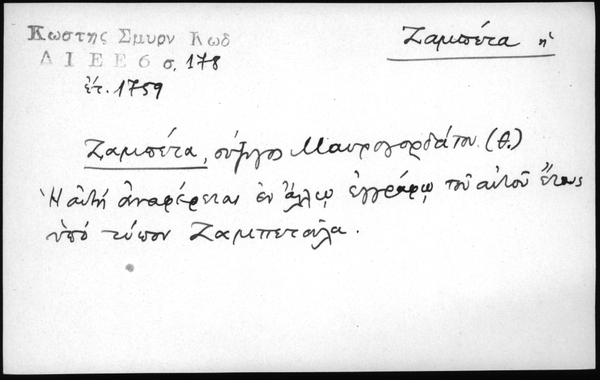 Κωστης Σμυρν Κωδ
Δ Ι Ε Ε 6 σ. 178
ἔτ. 1759
Ζαμπέτα ἡ
Ζαμπέτα, σύζυγος Μαυρογορδάτου (θ.)
Ἡ αὐτή ἀναφέρεται ἐν ἄλλῳ ἐγγράφῳ τοῦ αὐτοῦ ἔτους
ὑπό τύπον Ζαμπετούλα.